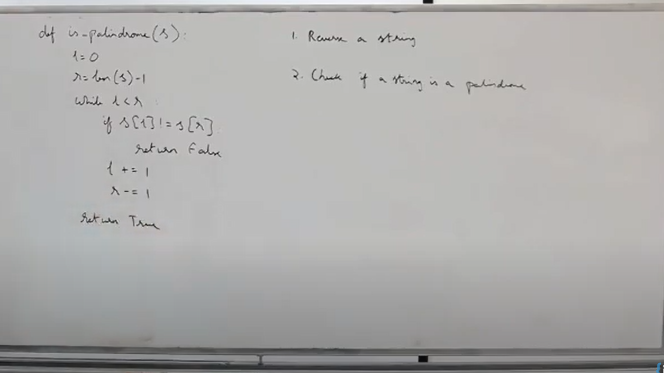 def is-palindrome(s):
l=0
r=len(s)-1
while l<r
if s[l]!=s[r]
return False
l += 1
r -= 1
return True
1. Reverse a string
2. Check if a string is a palindrome